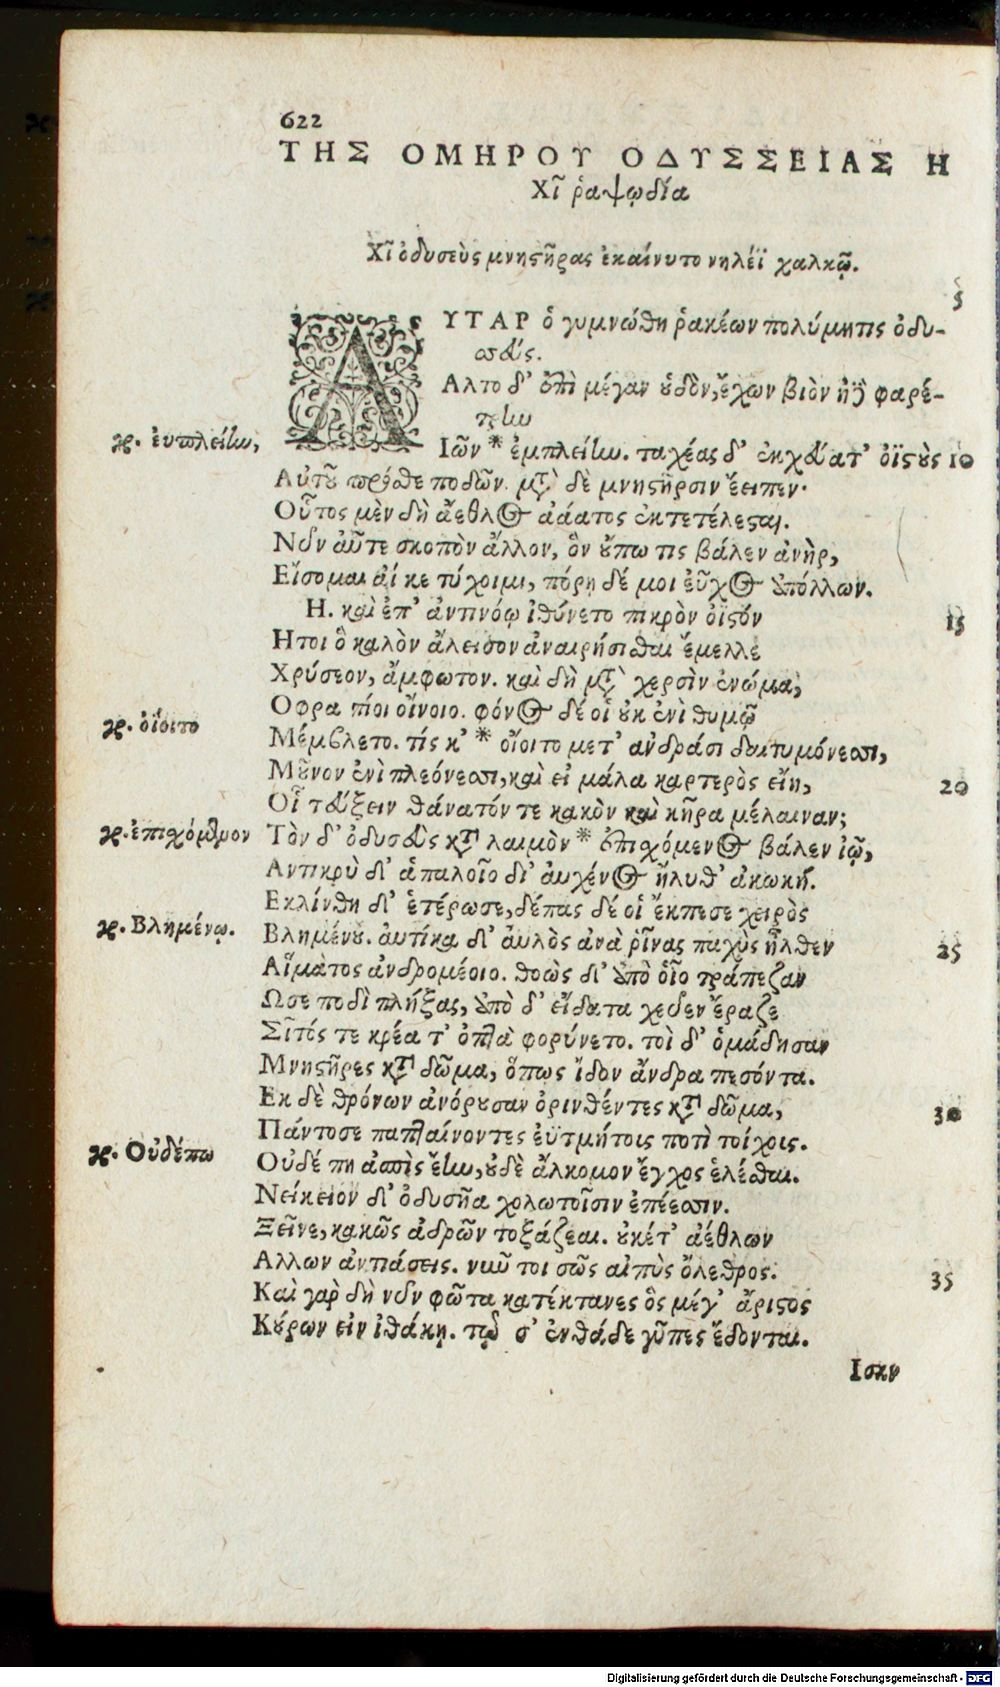 622
ΤΗΣ ΟΜΗΡΟΥ ΟΔΥΣΣΕΙΑΣ Η
Χῖ ῥαψῳδία
Χῖ ὀδυσεὺς μνηϛῆρας ἐκαίνυτο νηλέϊ χαλκῷ.
5
ΑΥΤΑΡ ὁ γυμνώθη ῥακέων πολύμητις ὀδυ-
σεύς.
Αλτο δ' ἐπὶ μέγαν οὐδὸν, ἔχων βιὸν ἠδὲ φαρέ-
τρην
γρ. ἐυπλείην,
Ιῶν * ἐμπλείην. ταχέας δ' ἐκχεύατ' ὀϊϛοὺς 10
Αὐτοῦ πρόσθε ποδῶν. μετὰ δὲ μνηϛῆρσιν ἔειπεν·
Οὗτος μὲν δὴ ἄεθλος ἀάατος ἐκτετέλεϛαι.
Νῦν αὖτε σκοπὸν ἄλλον, ὃν οὔπω τις βάλεν ἀνὴρ,
Εἴσομαι αἴ κε τύχοιμι, πόρῃ δέ μοι εὖχος ἀπόλλων.
Η. καὶ ἐπ' ἀντινόῳ ἰθύνετο πικρὸν ὀϊϛόν 15
Ητοι ὃ καλὸν ἄλεισον ἀναιρήσεσθαι ἔμελλε
Χρύσεον, ἄμφωτον. καὶ δὴ μετὰ χερσὶν ἐνώμα,
Οφρα πίοι οἴνοιο. φόνος δέ οἱ οὐκ ἐνὶ θυμῷ
γρ. οἴοιτο
Μέμβλετο. τίς κ' * οἴοιτο μετ' ἀνδράσι δαιτυμόνεσσι,
Μοῦνον ἐνὶ πλεόνεσσι, καὶ εἰ μάλα καρτερὸς εἴη, 20
Οἷ τεύξειν θάνατόν τε κακὸν καὶ κῆρα μέλαιναν;
γρ. ἐπισχόμενον
Τὸν δ' ὀδυσεὺς κατὰ λαιμὸν * ἐπισχόμενος βάλεν ἰῷ,
Αντικρὺ δ' ἁπαλοῖο δι' αὐχένος ἤλυθ' ἀκωκή.
Εκλίνθη δ' ἑτέρωσε, δέπας δέ οἱ ἔκπεσε χειρὸς
γρ. Βλημένῳ.
Βλημένου. αὐτίκα δ' αὐλὸς ἀνὰ ῥῖνας παχὺς ἦλθεν 25
Αἵματος ἀνδρομέοιο. θοῶς δ' ἀπὸ οἷο τράπεζαν
Ωσε ποδὶ πλήξας, ἀπὸ δ' εἴδατα χεῦεν ἔραζε
Σῖτός τε κρέα τ' ὀπτὰ φορύνετο. τοὶ δ' ὁμάδησαν
Μνηϛῆρες κατὰ δῶμα, ὅπως ἴδον ἄνδρα πεσόντα.
Εκ δὲ θρόνων ἀνόρουσαν ὀρινθέντες κατὰ δῶμα, 30
Πάντοσε παπταίνοντες ἐϋτμήτοις ποτὶ τοίχοις.
γρ. Οὐδέπω
Οὐδέ πη ἀσπὶς ἔην, οὐδὲ ἄλκιμον ἔγχος ἑλέσθαι.
Νείκειον δ' ὀδυσῆα χολωτοῖσιν ἐπέεσσιν.
Ξεῖνε, κακῶς ἀνδρῶν τοξάζεαι. οὐκέτ' ἀέθλων
Αλλων ἀντιάσεις. νῦν τοι σῶς αἰπὺς ὄλεθρος. 35
Καὶ γὰρ δὴ νῦν φῶτα κατέκτανες ὃς μέγ' ἄριϛος
Κούρων εἰν ἰθάκῃ. τῷ σ' ἐνθάδε γῦπες ἔδονται.
Ισκεν
Digitalisierung gefördert durch die Deutsche Forschungsgemeinschaft - DFG